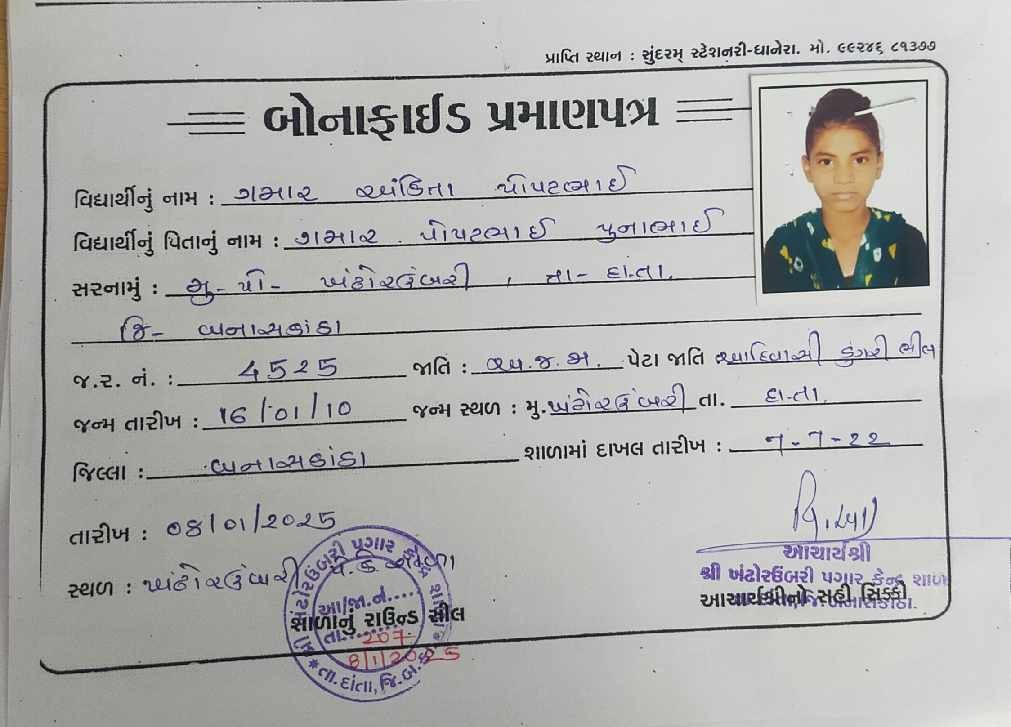 પ્રાપ્તિ સ્થાન : સુંદરમ્ સ્ટેશનરી-ધાનેરા. મો. ૯૯૨૪૬ ૮૧૩૭૭
બોનાફાઈડ પ્રમાણપત્ર
વિદ્યાર્થીનું નામ : ગમાર અંકિતા પોપટભાઈ
વિદ્યાર્થીનું પિતાનું નામ : ગમાર . પોપટભાઈ પુનાભાઈ
સરનામું : મુ - પો - ખંઢોરઉંબરી , તા- દાંતા.
જિ- બનાસકાંઠા
જ.ર. નં. : 4525 જાતિ : અ.જ.જા. પેટા જાતિ આદિવાસી ડુંગરી ભીલ
જન્મ તારીખ : 16/01/10 જન્મ સ્થળ : મુ. ખંઢોરઉંબરી તા. દાંતા.
જિલ્લા : બનાસકાંઠા શાળામાં દાખલ તારીખ : ૧-૧-૨૨
તારીખ : ૦૪/૦૧/૨૦૨૫
સ્થળ : ખંઢોરઉંબરી પે. કે. શાળા
આચાર્યશ્રી
શ્રી ખંઢોરઉંબરી પગાર કેન્દ્ર શાળા
આચાર્યશ્રીનો સહી સિક્કો
આ/જા.નં.....
શાળાનું રાઉન્ડ સીલ
તા. 207
8/1/2025
તા. દાંતા, જિ. બ.કાં.